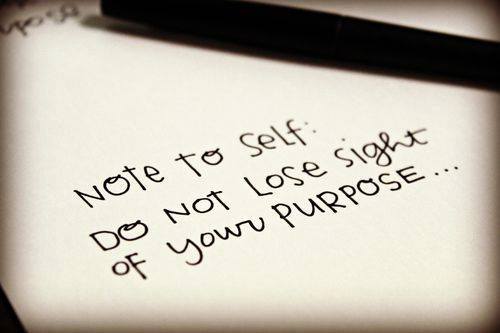 NOTE TO SELF:
DO NOT LOSE sight
OF your PURPOSE...